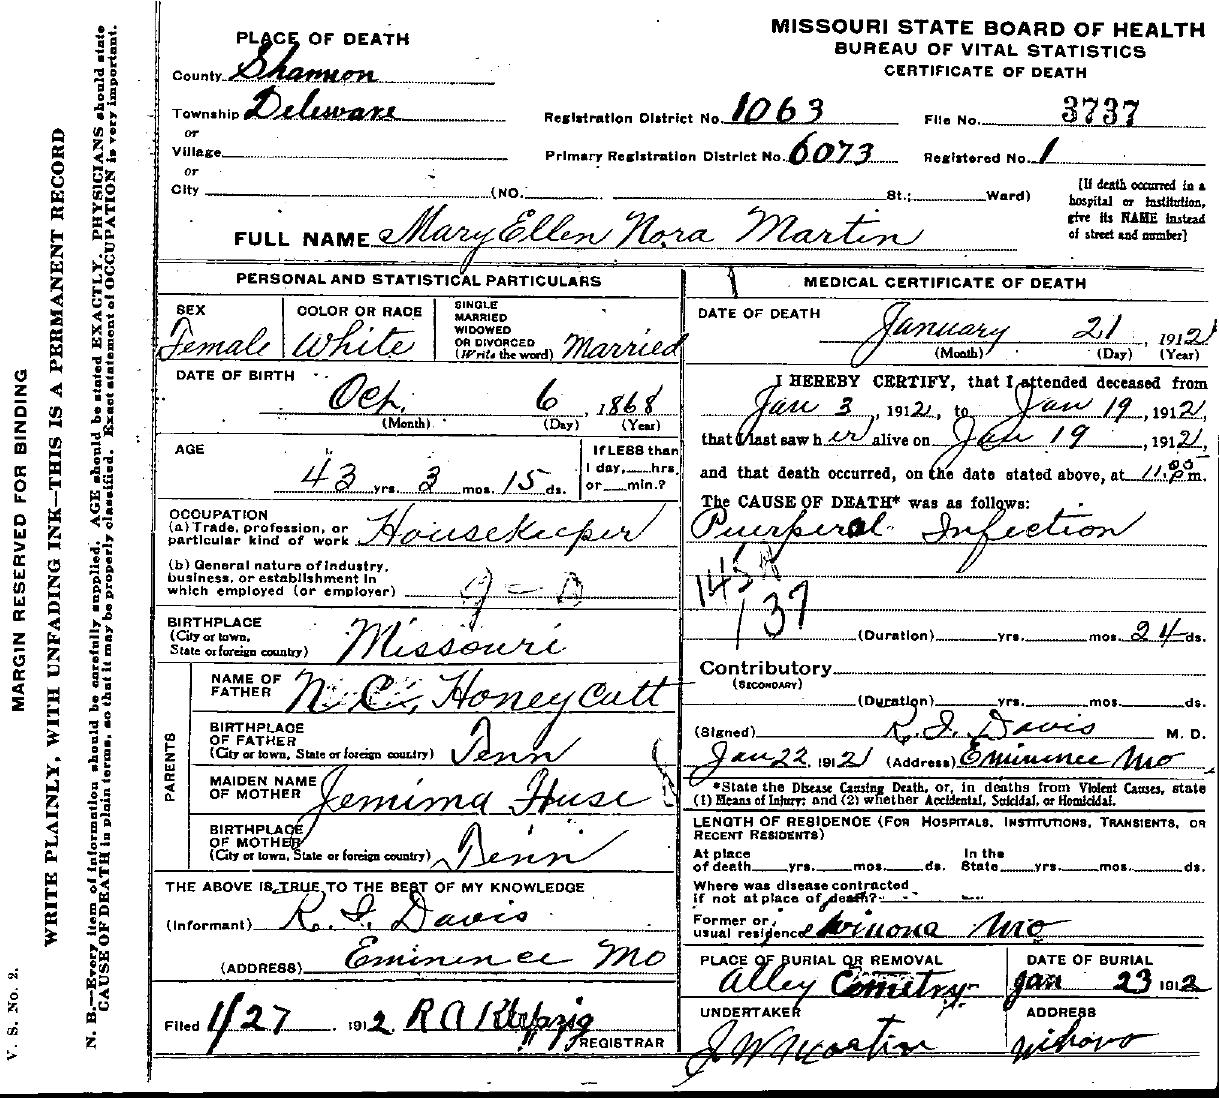 MISSOURI STATE BOARD OF HEALTH
BUREAU OF VITAL STATISTICS
CERTIFICATE OF DEATH
PLACE OF DEATH
County Shannon
Township Deleware
or
Village
or
City (NO. St.; Ward)
Registration District No. 1063 File No. 3737
Primary Registration District No. 6073 Registered No. 1
[If death occurred in a
hospital or institution,
give its NAME instead
of street and number]
FULL NAME Mary Ellen Nora Martin
PERSONAL AND STATISTICAL PARTICULARS
SEX
Female
COLOR OR RACE
White
SINGLE
MARRIED
WIDOWED
OR DIVORCED
(Write the word) Married
DATE OF BIRTH
Oct. 6, 1868
(Month) (Day) (Year)
AGE
43 yrs. 3 mos. 15 ds.
If LESS than
1 day, hrs.
or min.?
OCCUPATION
(a) Trade, profession, or
particular kind of work Housekeeper
(b) General nature of industry,
business, or establishment in
which employed (or employer)
BIRTHPLACE
(City or town,
State or foreign country) Missouri
PARENTS
NAME OF
FATHER N. C. Honeycutt
BIRTHPLACE
OF FATHER
(City or town, State or foreign country) Tenn
MAIDEN NAME
OF MOTHER Jemima Huse
BIRTHPLACE
OF MOTHER
(City or town, State or foreign country) Tenn
THE ABOVE IS TRUE TO THE BEST OF MY KNOWLEDGE
(Informant) R. I. Davis
(ADDRESS) Eminence Mo
Filed 1/27, 1912 R A
REGISTRAR
MEDICAL CERTIFICATE OF DEATH
DATE OF DEATH
January 21, 1912
(Month) (Day) (Year)
I HEREBY CERTIFY, that I attended deceased from
Jan 3, 1912, to Jan 19, 1912,
that I last saw her alive on Jan 19, 1912,
and that death occurred, on the date stated above, at 11.05 P m.
The CAUSE OF DEATH* was as follows:
Puerperal Infection
137
(Duration) yrs. mos. 24 ds.
Contributory
(SECONDARY)
(Duration) yrs. mos. ds.
(Signed) R. I. Davis M. D.
Jan 22, 1912 (Address) Eminence Mo
*State the Disease Causing Death, or, in deaths from Violent Causes, state
(1) Means of Injury; and (2) whether Accidental, Suicidal, or Homicidal.
LENGTH OF RESIDENCE (FOR HOSPITALS, INSTITUTIONS, TRANSIENTS, OR
RECENT RESIDENTS)
At place
of death yrs. mos. ds.
In the
State yrs. mos. ds.
Where was disease contracted
if not at place of death?
Former or
usual residence Winona Mo
PLACE OF BURIAL OR REMOVAL
Alley Cemetry
DATE OF BURIAL
Jan 23 1912
UNDERTAKER
J. W. Martin
ADDRESS
MARGIN RESERVED FOR BINDING
WRITE PLAINLY, WITH UNFADING INK—THIS IS A PERMANENT RECORD
N. B.—Every item of information should be carefully supplied. AGE should be stated EXACTLY. PHYSICIANS should state
CAUSE OF DEATH in plain terms, so that it may be properly classified. Exact statement of OCCUPATION is very important.
V. S. No. 2.